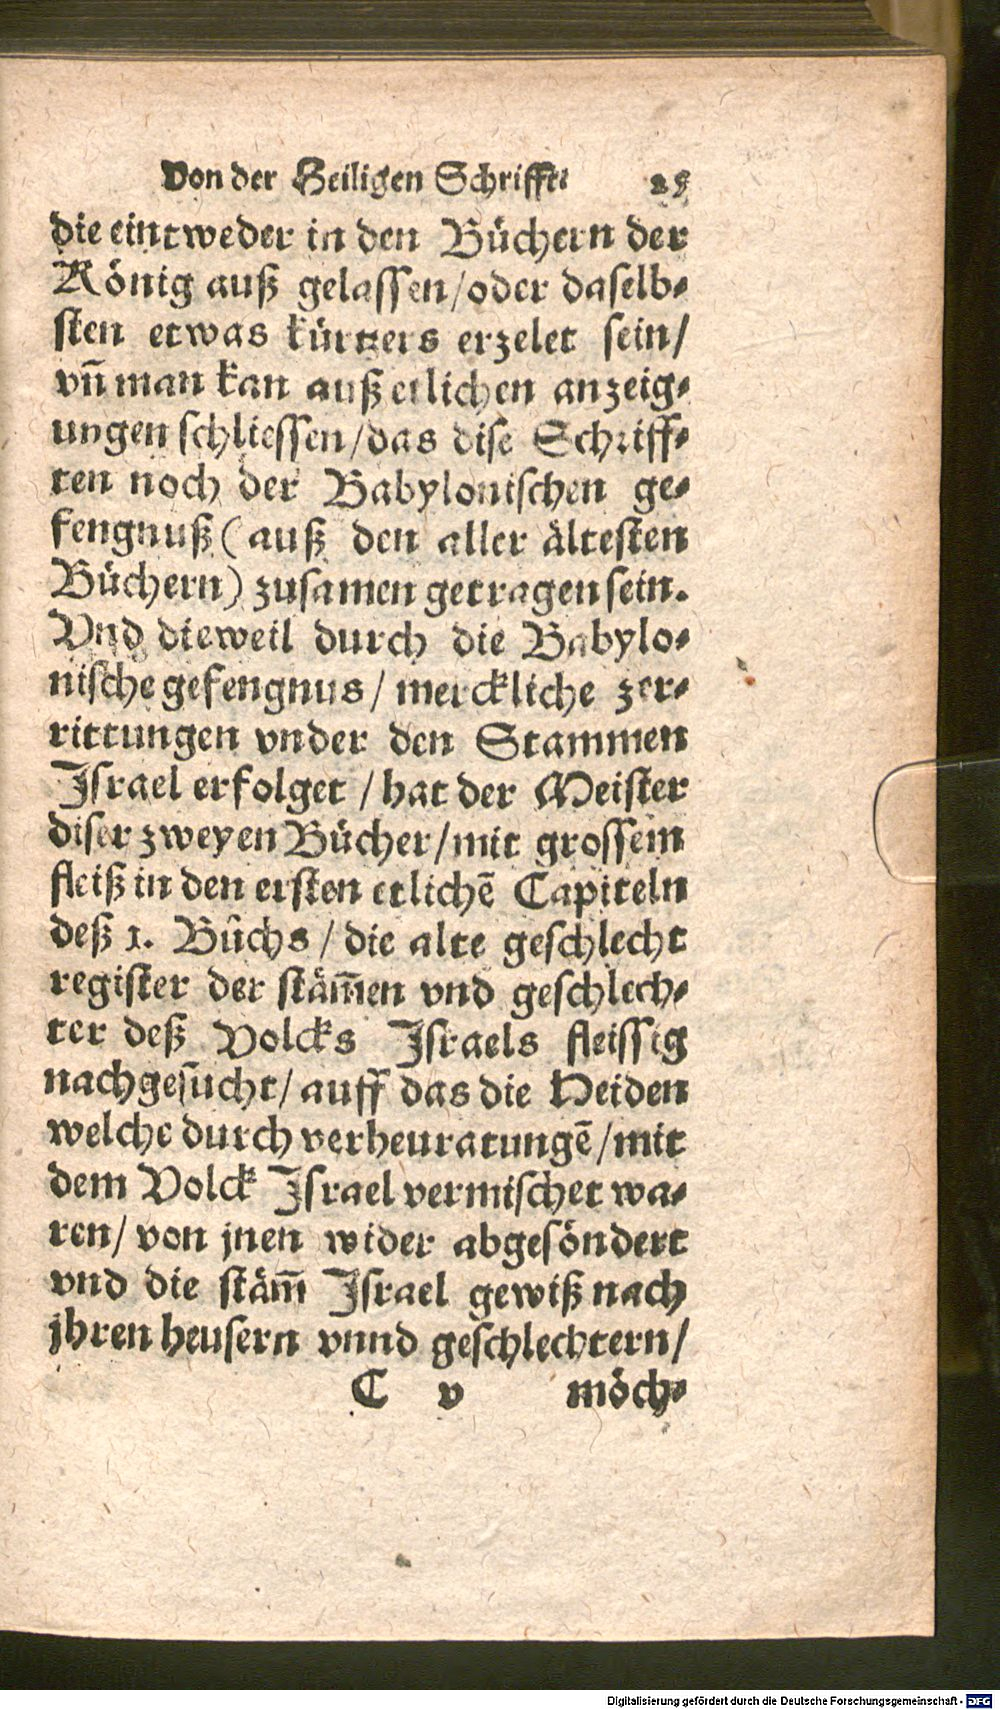 Von der Heiligen Schrifft. 25
die eintweder in den Büchern der
König auß gelassen/oder daselb-
sten etwas kürtzers erzelet sein/
vñ man kan auß etlichen anzeig-
ungen schliessen/das dise Schriff-
ten noch der Babylonischen ge-
fengnuß (auß den aller ältesten
Büchern) zusamen getragen sein.
Vnd dieweil durch die Babylo-
nische gefengnus/ merckliche zer-
rittungen vnder den Stammen
Israel erfolget / hat der Meister
diser zweyen Bücher/mit grossem
fleiß in den ersten etlichẽ Capiteln
deß 1. Bůchs / die alte geschlecht
register der stäm̃en vnd geschlech-
ter deß Volcks Israels fleissig
nachgesucht/ auff das die Heiden
welche durch verheuratungẽ/mit
dem Volck Israel vermischet wa-
ren/ von jnen wider abgesöndert
vnd die stäm̃ Israel gewiß nach
jhren heusern vnnd geschlechtern/
C v möch-
Digitalisierung gefördert durch die Deutsche Forschungsgemeinschaft - DFG